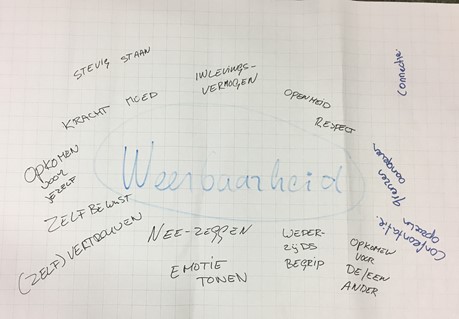 STEVIG STAAN
INLEVINGS-
VERMOGEN
Connectie
OPENHEID
KRACHT MOED
RESPECT
OPKOMEN
VOOR
JEZELF
Weerbaarheid
grenzen
aangeven
ZELFBEWUST
Confrontatie
(ZELF)VERTROUWEN
NEE-ZEGGEN
WEDER-
ZIJDS
BEGRIP
EMOTIE
TONEN
OPKOMEN
VOOR
DE/EEN
ANDER